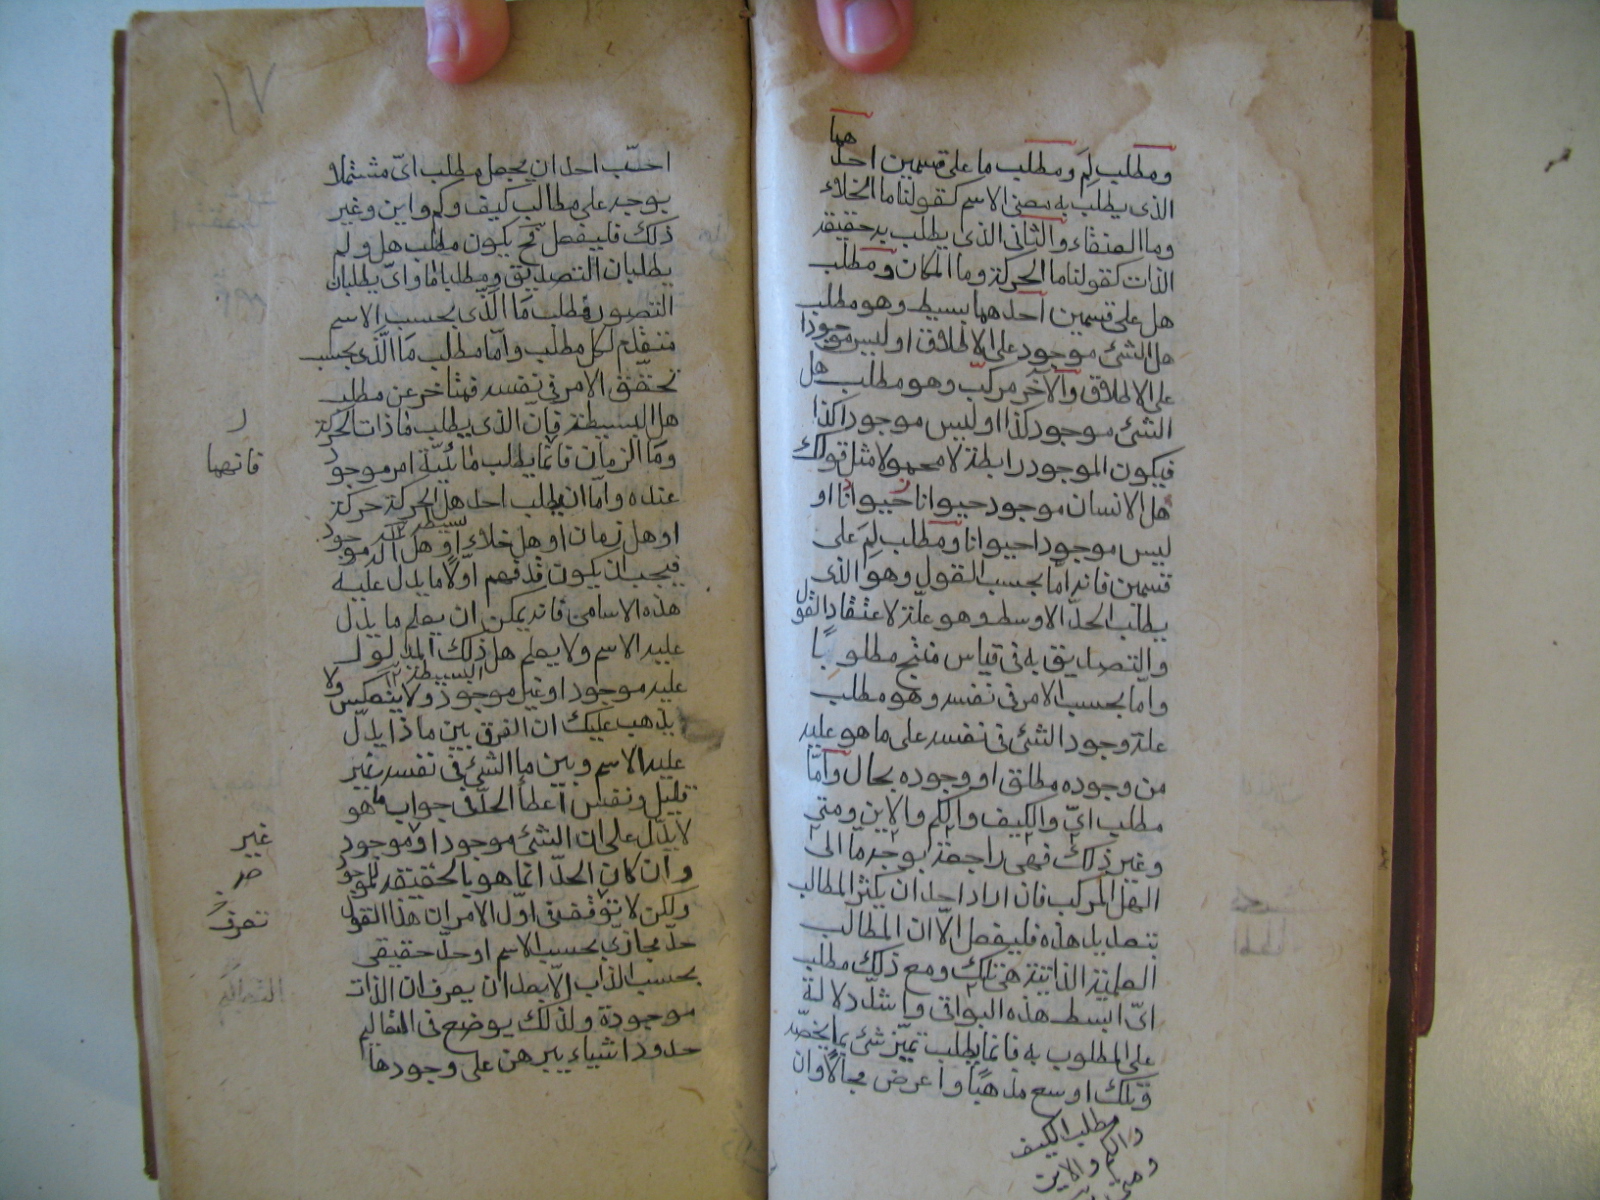 ومطلب لِمَ ومطلب ما على قسمين احدهما
الذى يطلب به معنى الاسم كقولنا ما الخلاء
وما العنقاء والثانى الذى يطلب به حقيقة
الذات كقولنا ما الحركة وما المكان ومطلب
هل على قسمين احدهما بسيط وهو مطلب
هل الشئ موجود على الاطلاق او ليس موجودا
على الاطلاق والآخر مركب وهو مطلب هل
الشئ موجود كذا او ليس موجودا كذا
فيكون الموجود رابطة لا محمولا مثل قولك
هل الانسان موجود حيوانا حيوانا او
ليس موجودا حيوانا ومطلب لِمَ على
قسمين فانه اما بحسب القول وهو الذى
يطلب الحدّ الاوسط وهو علة لاعتقاد القول
والتصديق به فى قياس منتج مطلوبا
واما بحسب الامر فى نفسه وهو مطلب
علة وجود الشئ فى نفسه على ما هو عليه
من وجوده مطلق او وجوده بحال واما
مطلب اىّ والكيف والكم والاين ومتى
وغير ذلك فهى راجعة بوجه ما الى
الهل المركب فان اراد احد ان يكثر المطالب
بتعديد هذه فليفعل الّا ان المطالب
العلمية الذاتية هى تلك ومع ذلك مطلب
اىّ ابسط هذه البواقى واشدّ دلالة
على المطلوب به فانما يطلب تميّز شئ بما يخصّه
وتلك اوسع مذهبا واعرض مجالا وان
مطلب الكيف
والكم
والاين
١٧
احبّ احد ان يجعل مطلب اىّ مشتملا
بوجه على مطالب كيف وكم واين وغير
ذلك فليفعل فح يكون مطلب هل ولم
يطلبان التصديق ومطلبا ما واىّ يطلبان
التصور فمطلب مَا الّذى بحسب الاسم
متقدم لكل مطلب وامّا مطلب مَا الّذى بحسب
تحقّق الامر فى نفسه فمتاخر عن مطلب
هل البسيطة فانّ الذى يطلب ما ذات الحركة
وما الزمان فانما يطلب مائيّة امر موجود
عنده وامّا ان يطلب احد هل الحركة حركة
او هل زمان او هل خلاء او هل اله موجود
بسيطة ١٢
فيجب ان يكون قد فهم اوّلا ما يدل عليه
هذه الاسامى فانه يمكن ان يعلم ما يدل
عليه الاسم ولا يعلم هل ذلك المدلول
البسيطة ١٢
عليه موجود او غير موجود ولا ينعكس ولا
يذهب عليك ان الفرق بين ماذا يدل
عليه الاسم وبين ما الشئ فى نفسه غير
قليل ونفس اعطاء الحدّ فى جواب ما هو
لا يدلّ على ان الشئ موجود او موجود
وان كان الحدّ انما هو بالحقيقة للموجود
ولكن لا توقف فى اوّل الامر ان هذا القول
حدّ مجازى بحسب الاسم او حدّ حقيقى
بحسب الذات الّا بعد ان يعرف ان الذات
موجودة ولذلك يوضع فى التعاليم
حدود اشياء يبرهن على وجودها
فانهما
غير
صر
تعرف